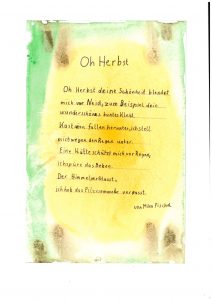 Oh Herbst
Oh Herbst deine Schönheit blendet
mich vor Neid, zum Beispiel dein
wunderschönes buntes Kleid.
Kastanien fallen herunter, ich stell
mich wegen dem Regen unter.
Eine Hütte schützt mich vor Regen,
ich spüre das Beben.
Der Himmel
ich hab das verpasst.
von Milen Fischer